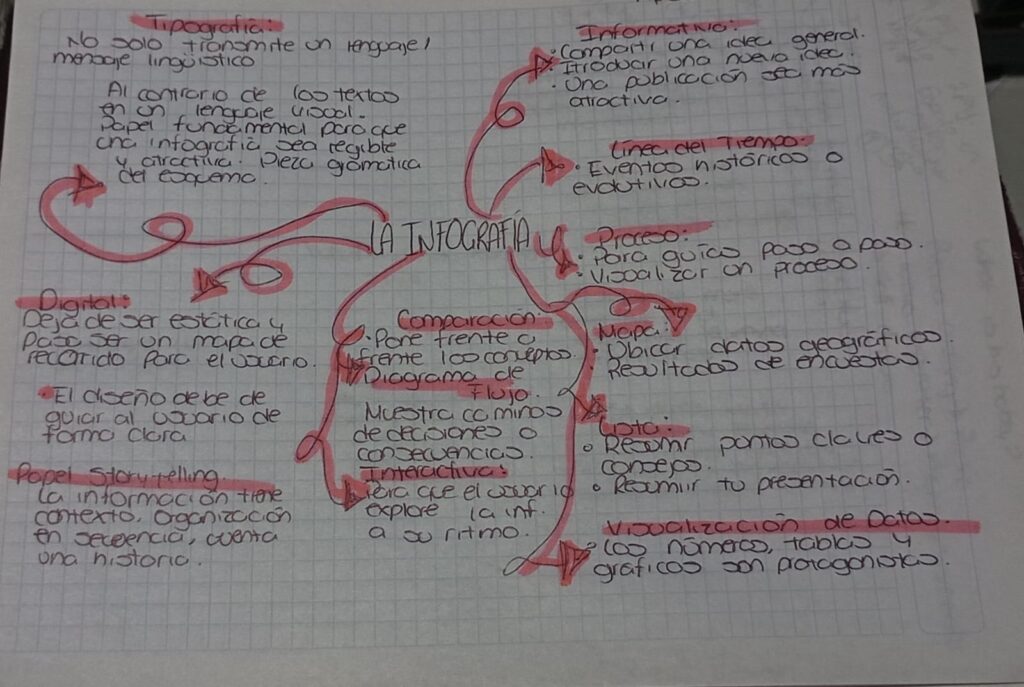 Tipografía:
No solo transmite un lenguaje/
mensaje lingüístico
Al contrario de los textos
en un lenguaje visual.
Papel fundamental para que
una infografía sea regible
y atractiva. Pieza gramatica
del esquema.
Informativo:
· Compartir una idea general.
· Itroducir una nueva idea.
· Una publicación sea más
atractiva.
Línea del Tiempo:
· Eventos históricos o
evolutivos.
LA INFOGRAFÍA
Proceso:
· Para guías paso a paso.
· Visualizar un proceso.
Digital:
Deja de ser estática y
pasa ser un mapa de
recorrido para el usuario.
• El diseño debe de
guiar al usuario de
forma clara
Papel Storytelling.
La información tiene
contexto. Organización
en secuencia, cuenta
una historia.
Comparación:
· Pone frente a
frente los conceptos.
Diagrama de
Flujo.
Muestra caminos
de decisiones o
consecuencias.
Interactiva:
Para que el usuario
explore la inf.
a su ritmo.
Mapa:
· Ubicar datos geográficos.
· Resultados de encuestas.
Lista:
o Resumir puntos claves o
consejos.
o Resumir tu presentación.
Visualización de Datos.
· Los números, tablas y
gráficos son protagonistas.